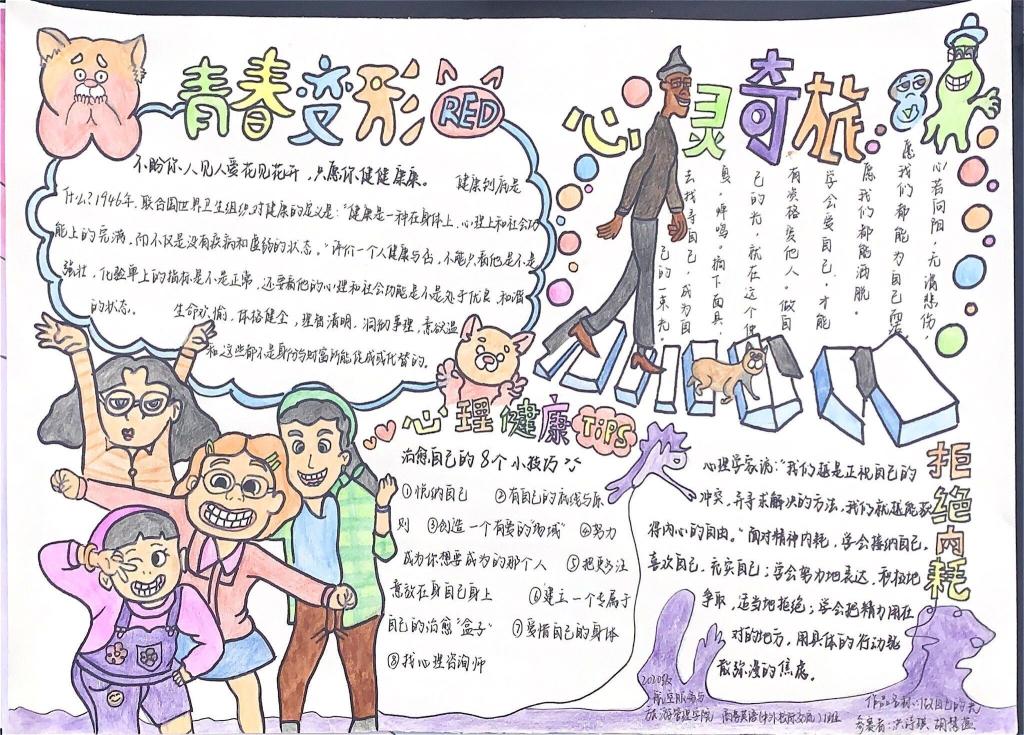 青春变形
RED
不盼你人见人爱花见花开，只愿你健健康康。 健康到底是
什么？1946年，联合国世界卫生组织对健康的定义是：“健康是一种在身体上、心理上和社会功
能上的完满，而不仅是没有疾病和虚弱的状态。”评价一个人健康与否，不能只看他是不是
强壮，化验单上的指标是不是正常，还要看他的心理和社会功能是不是处于优良和谐
的状态。 生命欢愉，体格健全，理智清明，洞彻事理，意欲温
和这些都不是身份与财富所能促成或代替的。
心灵奇旅
心若向阳，无谓悲伤，
愿我们都能为自己而活
愿我们都能洒脱。
学会爱自己，才能
有资格爱他人。做自
己的光，就在这个
奥，嘿嘿。摘下面具，
去找寻自己，成为自
己的一束光
心理健康
TIPS
治愈自己的8个小技巧
①悦纳自己 ②有自己的底线与原
则 ③创造一个有爱的“场域” ④努力
成为你想要成为的那个人 ⑤把更多注
意放在身自己身上 ⑥建立一个专属于
自己的治愈“盒子” ⑦爱惜自己的身体
⑧找心理咨询师
拒绝内耗
心理学家说：“我们越是正视自己的
冲突，并寻求解决的方法，我们就越能获
得内心的自由。”面对精神内耗，学会接纳自己，
喜欢自己，充实自己；学会努力地表达，积极地
争取，适当地拒绝；学会把精力用在
对的地方，用具体的行动就
散弥漫的焦虑。
2020级
航空服务与
旅游管理学院 商务英语（中外
班
作品名称：做自己的光
参赛者：